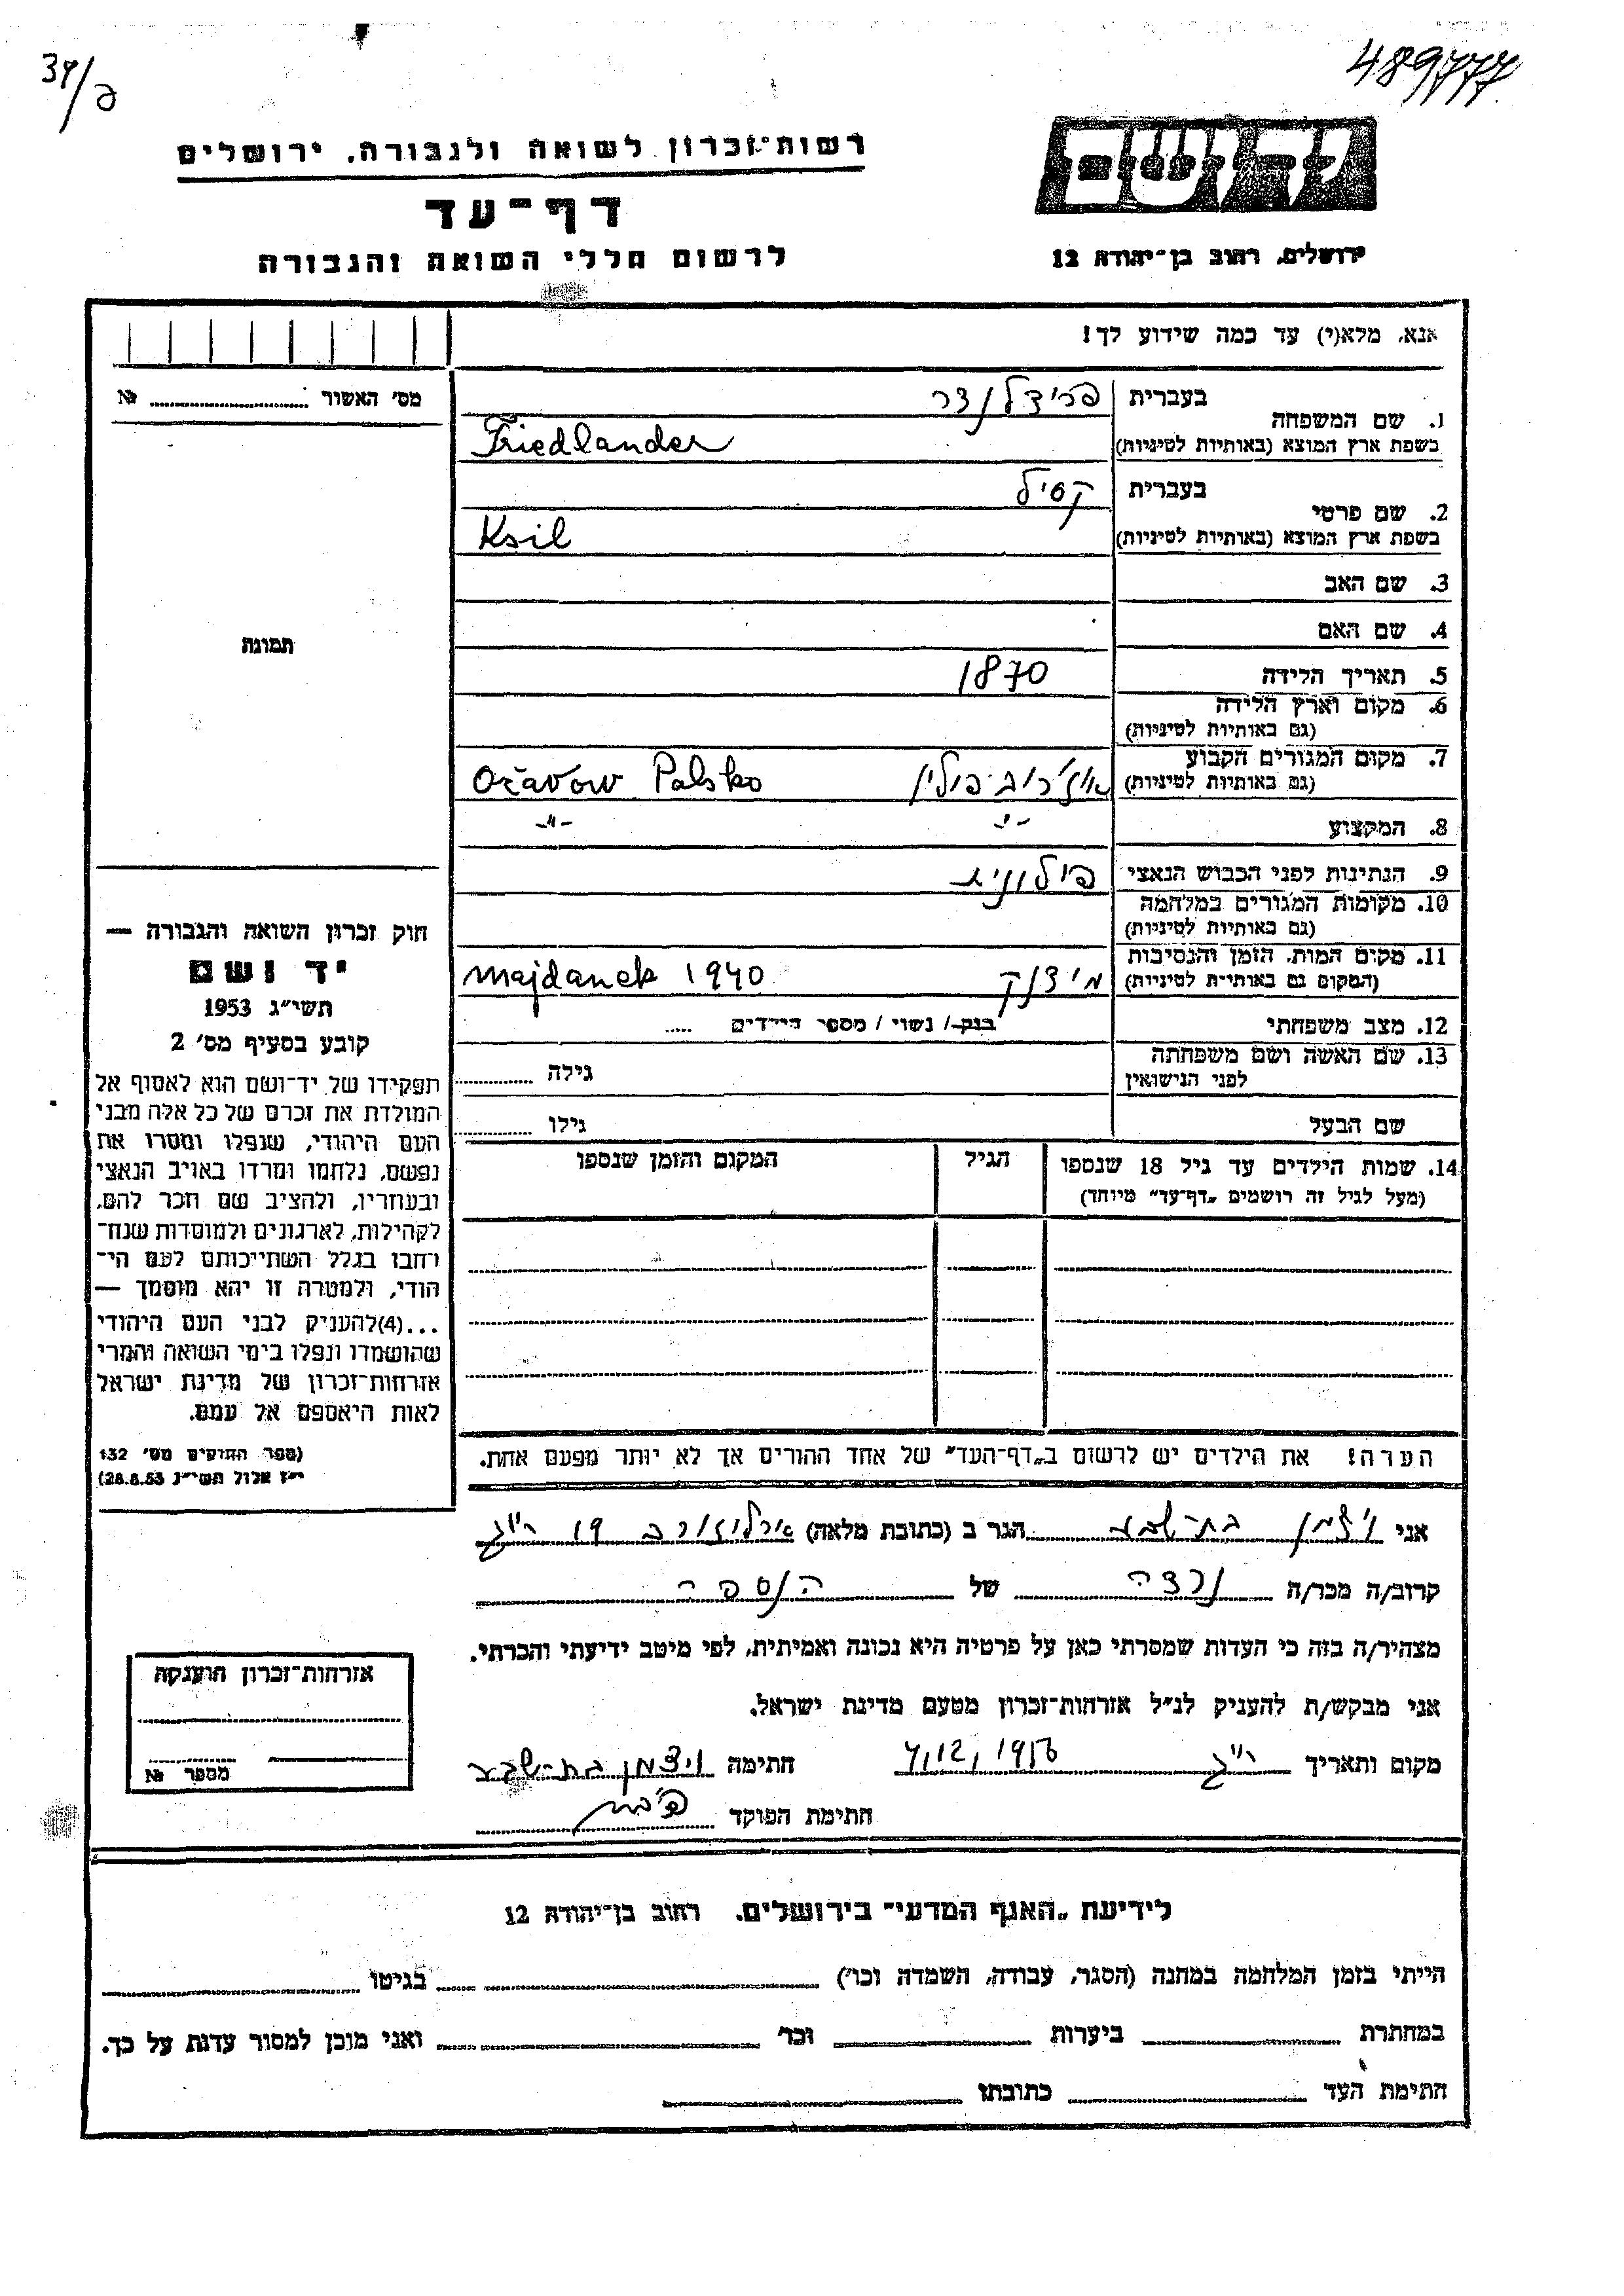 37/ם
489777
יד ושם
רשות־זכרון לשואה ולגבורה, ירושלים
דף־עד
לרשום חללי השואה והגבורה
ירושלים, רחוב בן־יהודה 12
אנא, מלא(י) עד כמה שידוע לך!
מס׳ האשור № ....................
1. שם המשפחה
בעברית פרידלנדר
בשפת ארץ המוצא (באותיות לטיניות) Friedlander
2. שם פרטי
בעברית קסיל
בשפת ארץ המוצא (באותיות לטיניות) Ksil
3. שם האב
4. שם האם
תמונה
5. תאריך הלידה 1870
6. מקום וארץ הלידה
(גם באותיות לטיניות)
7. מקום המגורים הקבוע
(גם באותיות לטיניות) אוז׳רוב פולין Ožarow Palsko
8. המקצוע -"- -"-
9. הנתינות לפני הכבוש הנאצי פולונית
10. מקומות המגורים במלחמה
(גם באותיות לטיניות)
11. מקום המות, הזמן והנסיבות
(המקום גם באותיות לטיניות) מידנק majdanek 1940
12. מצב משפחתי רווק / נשוי / מספר הילדים .....
13. שם האשה ושם משפחתה
לפני הנישואין גילה ............
שם הבעל גילו ............
14. שמות הילדים עד גיל 18 שנספו
(מעל לגיל זה רושמים „דף־עד” מיוחד)
הגיל
המקום והזמן שנספו
הערה! את הילדים יש לרשום ב„דף־העד” של אחד ההורים אך לא יותר מפעם אחת.
חוק זכרון השואה והגבורה —
יד ושם
תשי״ג 1953
קובע בסעיף מס׳ 2
תפקידו של יד־ושם הוא לאסוף אל
המולדת את זכרם של כל אלה מבני
העם היהודי, שנפלו ומסרו את
נפשם, נלחמו ומרדו באויב הנאצי
ובעוזריו, ולהציב שם וזכר להם,
לקהילות, לארגונים ולמוסדות שנח־
רבו בגלל השתייכותם לעם הי־
הודי, ולמטרה זו יהא מוסמך —
...(4)להעניק לבני העם היהודי
שהושמדו ונפלו בימי השואה והמרי
אזרחות־זכרון של מדינת ישראל
לאות היאספם אל עמם.
(ספר החוקים מס׳ 132
י״ז אלול תשי״ג 28.8.53)
אני ויצמן בת־שבע הגר ב (כתובת מלאה) ארלוזורב 19 ר״ג
קרוב/ה מכר/ה נכדה של הנספה
מצהיר/ה בזה כי העדות שמסרתי כאן על פרטיה היא נכונה ואמיתית, לפי מיטב ידיעתי והכרתי.
אני מבקש/ת להעניק לנ״ל אזרחות־זכרון מטעם מדינת ישראל.
מקום ותאריך ר״ג 4,12,1956 חתימה ויצמן בת־שבע
חתימת הפוקד
אזרחות־זכרון הוענקה
מספר №
לידיעת „האגף המדעי” בירושלים, רחוב בן־יהודה 12
הייתי בזמן המלחמה במחנה (הסגר, עבודה, השמדה וכו׳) בגיטו
במחתרת ביערות וכו׳ ואני מוכן למסור עדות על כך.
חתימת העד כתובתו